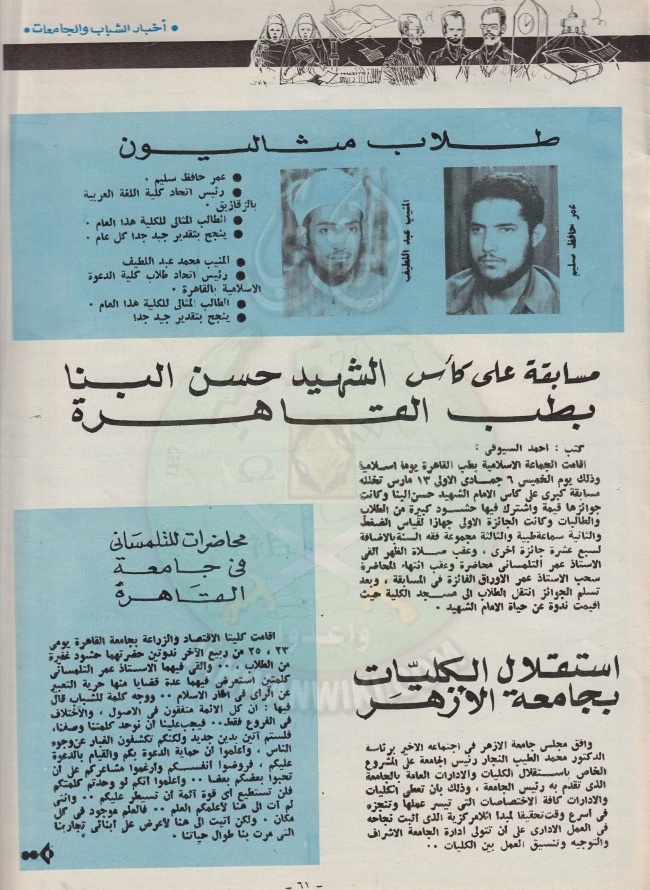 • أخبار الشباب والجامعات •
طلاب مثاليون
● عمر حافظ سليم ٠
● رئيس اتحاد كلية اللغة العربية
بالزقازيق ٠
● الطالب المثالى للكلية هذا العام ٠
● ينجح بتقدير جيد جدا كل عام ٠
● المنيب محمد عبد اللطيف
● رئيس اتحاد طلاب كلية الدعوة
الاسلامية بالقاهرة ٠
● الطالب المثالى للكلية هذا العام ٠
● ينجح بتقدير جيد جدا
المنيب عبد اللطيف
عمر حافظ سليم
مسابقة على كأس الشهيد حسن البنا
بطب القاهرة
كتب : احمد السيوفى :
اقامت الجماعة الاسلامية بطب القاهرة يوما اسلاميا
وذلك يوم الخميس ٦ جمادى الاولى ١٣ مارس تخلله
مسابقة كبرى على كاس الامام الشهيد حسن البنا وكانت
جوائزها قيمة واشترك فيها حشود كبيرة من الطلاب
والطالبات وكانت الجائزة الاولى جهازا لقياس الضغط
والثانية سماعة طبية والثالثة مجموعة فقه السنة بالاضافة
لسبع عشرة جائزة اخرى ، وعقب صلاة الظهر القى
الاستاذ عمر التلمسانى محاضرة وعقب انتهاء المحاضرة
سحب الاستاذ عمر الاوراق الفائزة فى المسابقة ، وبعد
تسلم الجوائز انتقل الطلاب الى مسجد الكلية حيث
اقيمت ندوة عن حياة الامام الشهيد ٠
محاضرات للتلمسانى
فى جامعة
القاهرة
اقامت كليتا الاقتصاد والزراعة بجامعة القاهرة يومى
٢٣ ، ٢٥ من ربيع الآخر ندوتين حضرتهما حشود غفيرة
من الطلاب ٠٠ والقى فيهما الاستاذ عمر التلمسانى
كلمتين استعرض فيهما عدة قضايا منها حرية التعبير
عن الراى فى اطار الاسلام ٠٠ ووجه كلمة للشباب قال
فيها : ان كل الائمة متفقون فى الاصول ، والاختلاف
فى الفروع فقط ٠٠ فيجب علينا ان نوحد كلمتنا وصفنا،
فلستم آتين بدين جديد ولكنكم تكشفون الغبار عن وجوه
الناس ، واعلموا ان حماية الدعوة بكم والقيام بالدعوة
عليكم ، فروضوا انفسكم وارغموا مشاعركم على ان
تحبوا بعضكم بعضا ٠٠ واعلموا انكم لو وحدتم كلمتكم
فلن تستطيع اى قوة آثمة ان تسيطر عليكم ٠٠ واننى
لم آت الى هنا لاعلمكم العلم ٠٠ فالعلم موجود فى كل
مكان ٠ ولكن اتيت الى هنا لاعرض على ابنائى تجاربنا
التى مرت بنا طوال حياتنا ٠
استقلال الكليات
بجامعة الأزهر
وافق مجلس جامعة الازهر فى اجتماعه الاخير برئاسة
الدكتور محمد الطيب النجار رئيس الجامعة على المشروع
الخاص باستقلال الكليات والادارات العامة بالجامعة
الذى تقدم به رئيس الجامعة ، وذلك بان تعطى الكليات
والادارات كافة الاختصاصات التى تيسر عملها وتنجزه
فى اسرع وقت تحقيقا لمبدا اللامركزية الذى اثبت نجاحه
فى العمل الادارى على ان تتولى ادارة الجامعة الاشراف
والتوجيه وتنسيق العمل بين الكليات ٠٠
- ٦١ -